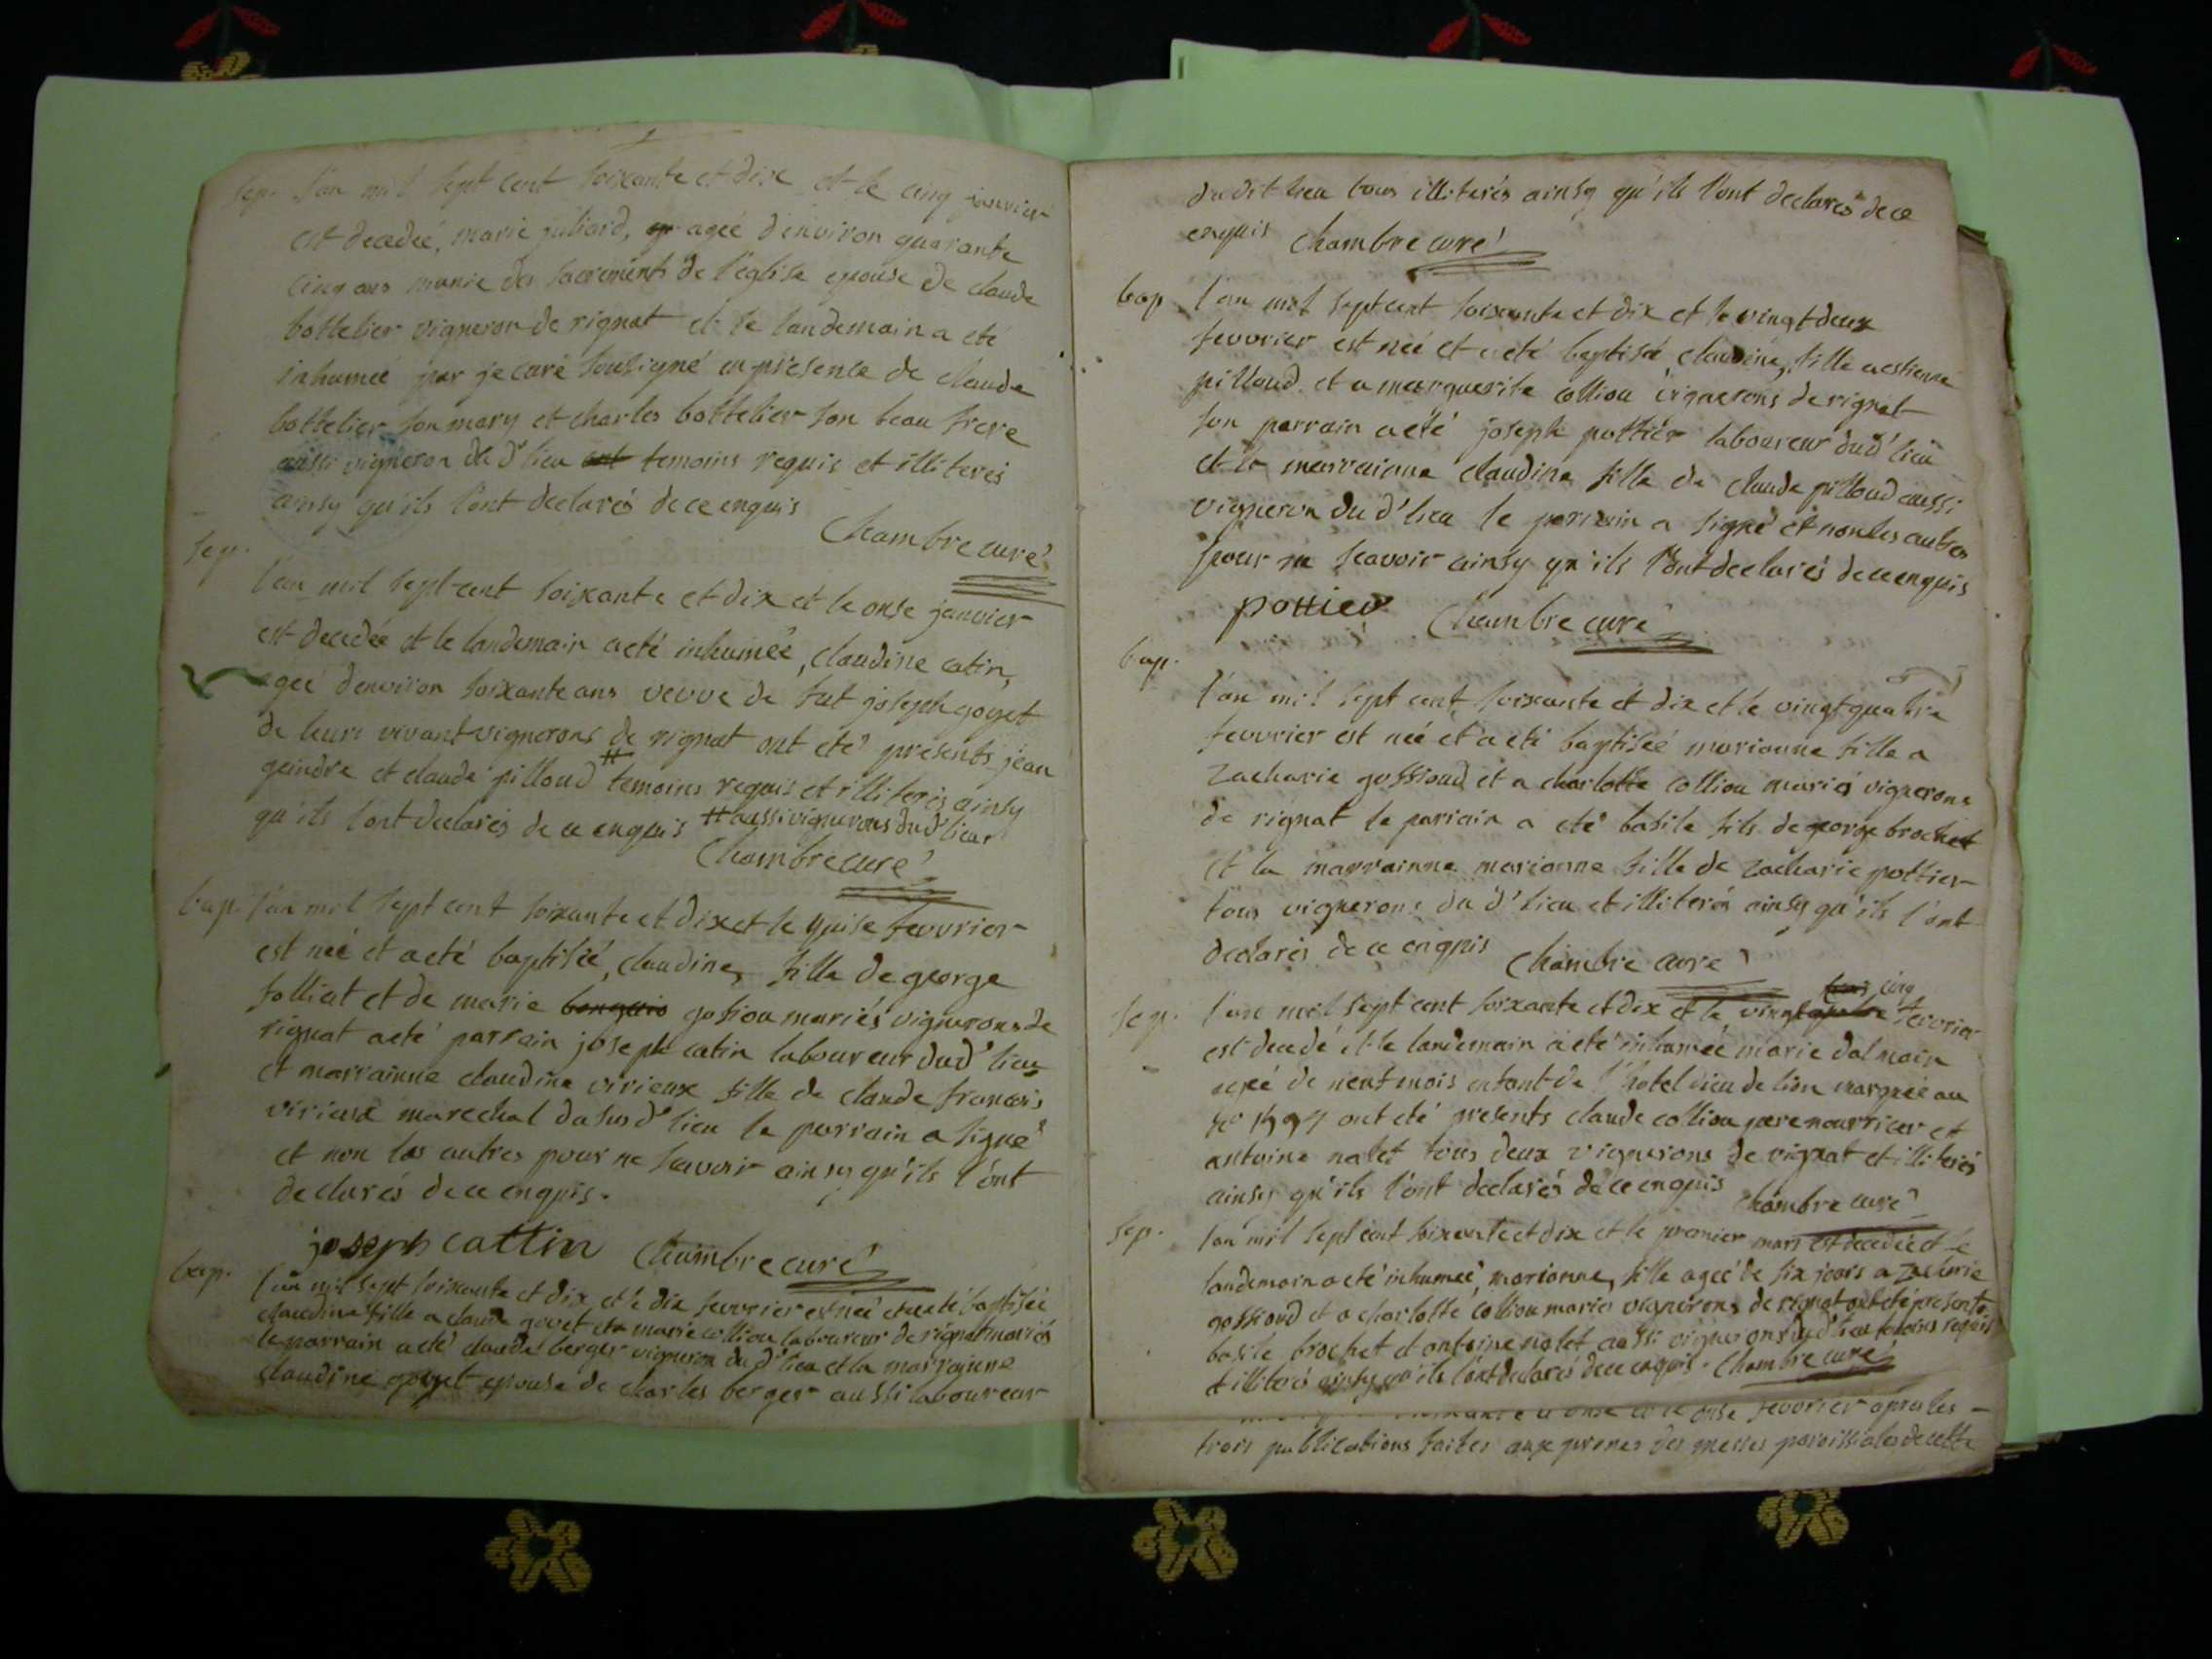 1
sep. l'an mil sept cent soixante et dix et le cinq janvier
est decedeé, marie juliard, agée d'environ quarante
cinq ans munie des sacrements de l'eglise epouse de claude
bottelier vigneron de rignat et le landemain a eté
inhumeé par je curé soussigné en présence de claude
bottelier son mary et charles bottelier son beau frere
aussi vigneron du d' lieu temoins requis et illiterés
ainsy qu'ils l'ont declarés de ce enquis
Chambre curé
sep.
l'an mil sept cent soixante et dix et le onse janvier
est decedée et le landemain a eté inhumeé, claudine catin,
ageé d'environ soixante ans veuve de fut joseph goyet
de leurs vivant vignerons de # rignat ont eté presents jean
geindre et claude pilloud temoins requis et illiterés ainsy
qu'ils l'ont declarés de ce enquis # aussi vignerons dud' lieu
Chambre curé
bap. l'an mil sept cent soixante et dix et le quise fevvrier
est neé et a eté baptiseé, claudine, fille de george
folliat et de marie gosiou mariés vignerons de
rignat a eté parrain joseph catin laboureur dud' lieu
et marrainne claudine virieux fille de claude francois
virieux marechal du susd' lieu le parrain a signé
et non les autres pour ne scavoir ainsy qu'ils l'ont
declarés de ce enquis.
joseph cattin Chambre curé
bap. l'an mil sept soixante et dix et le dix fevvrier est neé et a eté baptiseé
claudine fille a claude goyet et a marie colliou laboureur de rignat mariés
le parrain a eté claude berger vigneron du d' lieu et la marrainne
claudine goyet epouse de charles berger aussi laboureur
dudit lieu tous illiterés ainsy qu'ils l'ont declarés de ce
enquis Chambre curé
bap l'an mil sept cent soixante et dix et le vingt deux
fevvrier est neé et a eté baptiseé claudine, fille a estienne
pilloud et a marguerite colliou vignerons de rignat
son parrain a eté joseph pottier laboureur dud' lieu
et la marrainne claudine fille de claude pilloud aussi
vigneron du d' lieu le parrain a signé et non les autres
pour ne scavoir ainsy qu'ils l'ont declarés de ce enquis
pottier Chambre curé
bap.
l'an mil sept cent soixante et dix et le vingt quatre
fevvrier est neé et a eté baptiseé marianne fille a
Zacharie gossioud et a charlotte colliou mariés vignerons
de rignat le parrain a eté basile fils de george brochet
et la marrainne marianne fille de zacharie pottier
tous vignerons du d' lieu et illiterés ainsy qu'ils l'ont
declarés de ce enquis Chambre curé
sep. l'an mil sept cent soixante et dix et le vingt cinq fevvrier
est decedé et le landemain a eté inhumeé marie dalmain
ageé de neuf mois enfant de l'hotel dieu de lion marqueé au
ont eté presents claude colliou pere nourricier et
antoine nalet tous deux vignerons de rignat et illiterés
ainsy qu'ils l'ont declarés de ce enquis Chambre curé
sep. l'an mil sept cent soixante et dix et le premier mars est decedeé et le
landemain a eté inhumeé, marianne, fille ageé de six jours a zacharie
gossioud et a charlotte colliou mariés vignerons de rignat ont eté presents
basile brochet et antoine nalet aussi vignerons du d' lieu temoins requis
et illiterés ainsy qu'ils l'ont declarés de ce enquis. Chambre curé
onse et le onse fevvrier apres les
trois publications faites aux prones des messes paroissiales de cette